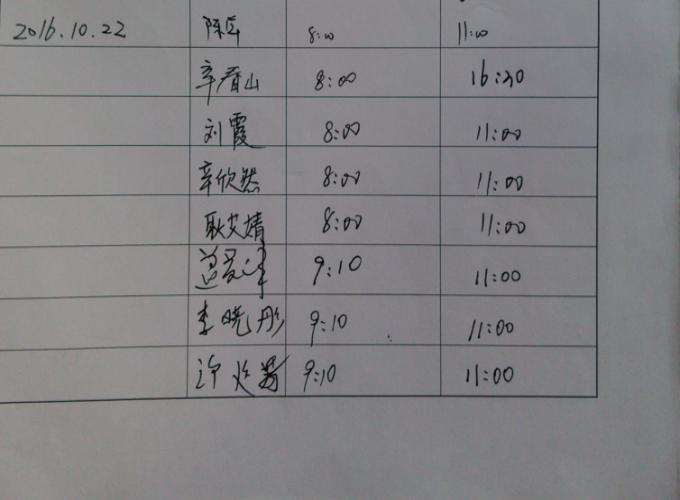 2016.10.22 陈岳 8:00 11:00
辛春山 8:00 16:30
刘霞 8:00 11:00
辛欣然 8:00 11:00
耿艾婧 8:00 11:00
9:10 11:00
李晓彤 9:10 11:00
许 9:10 11:00